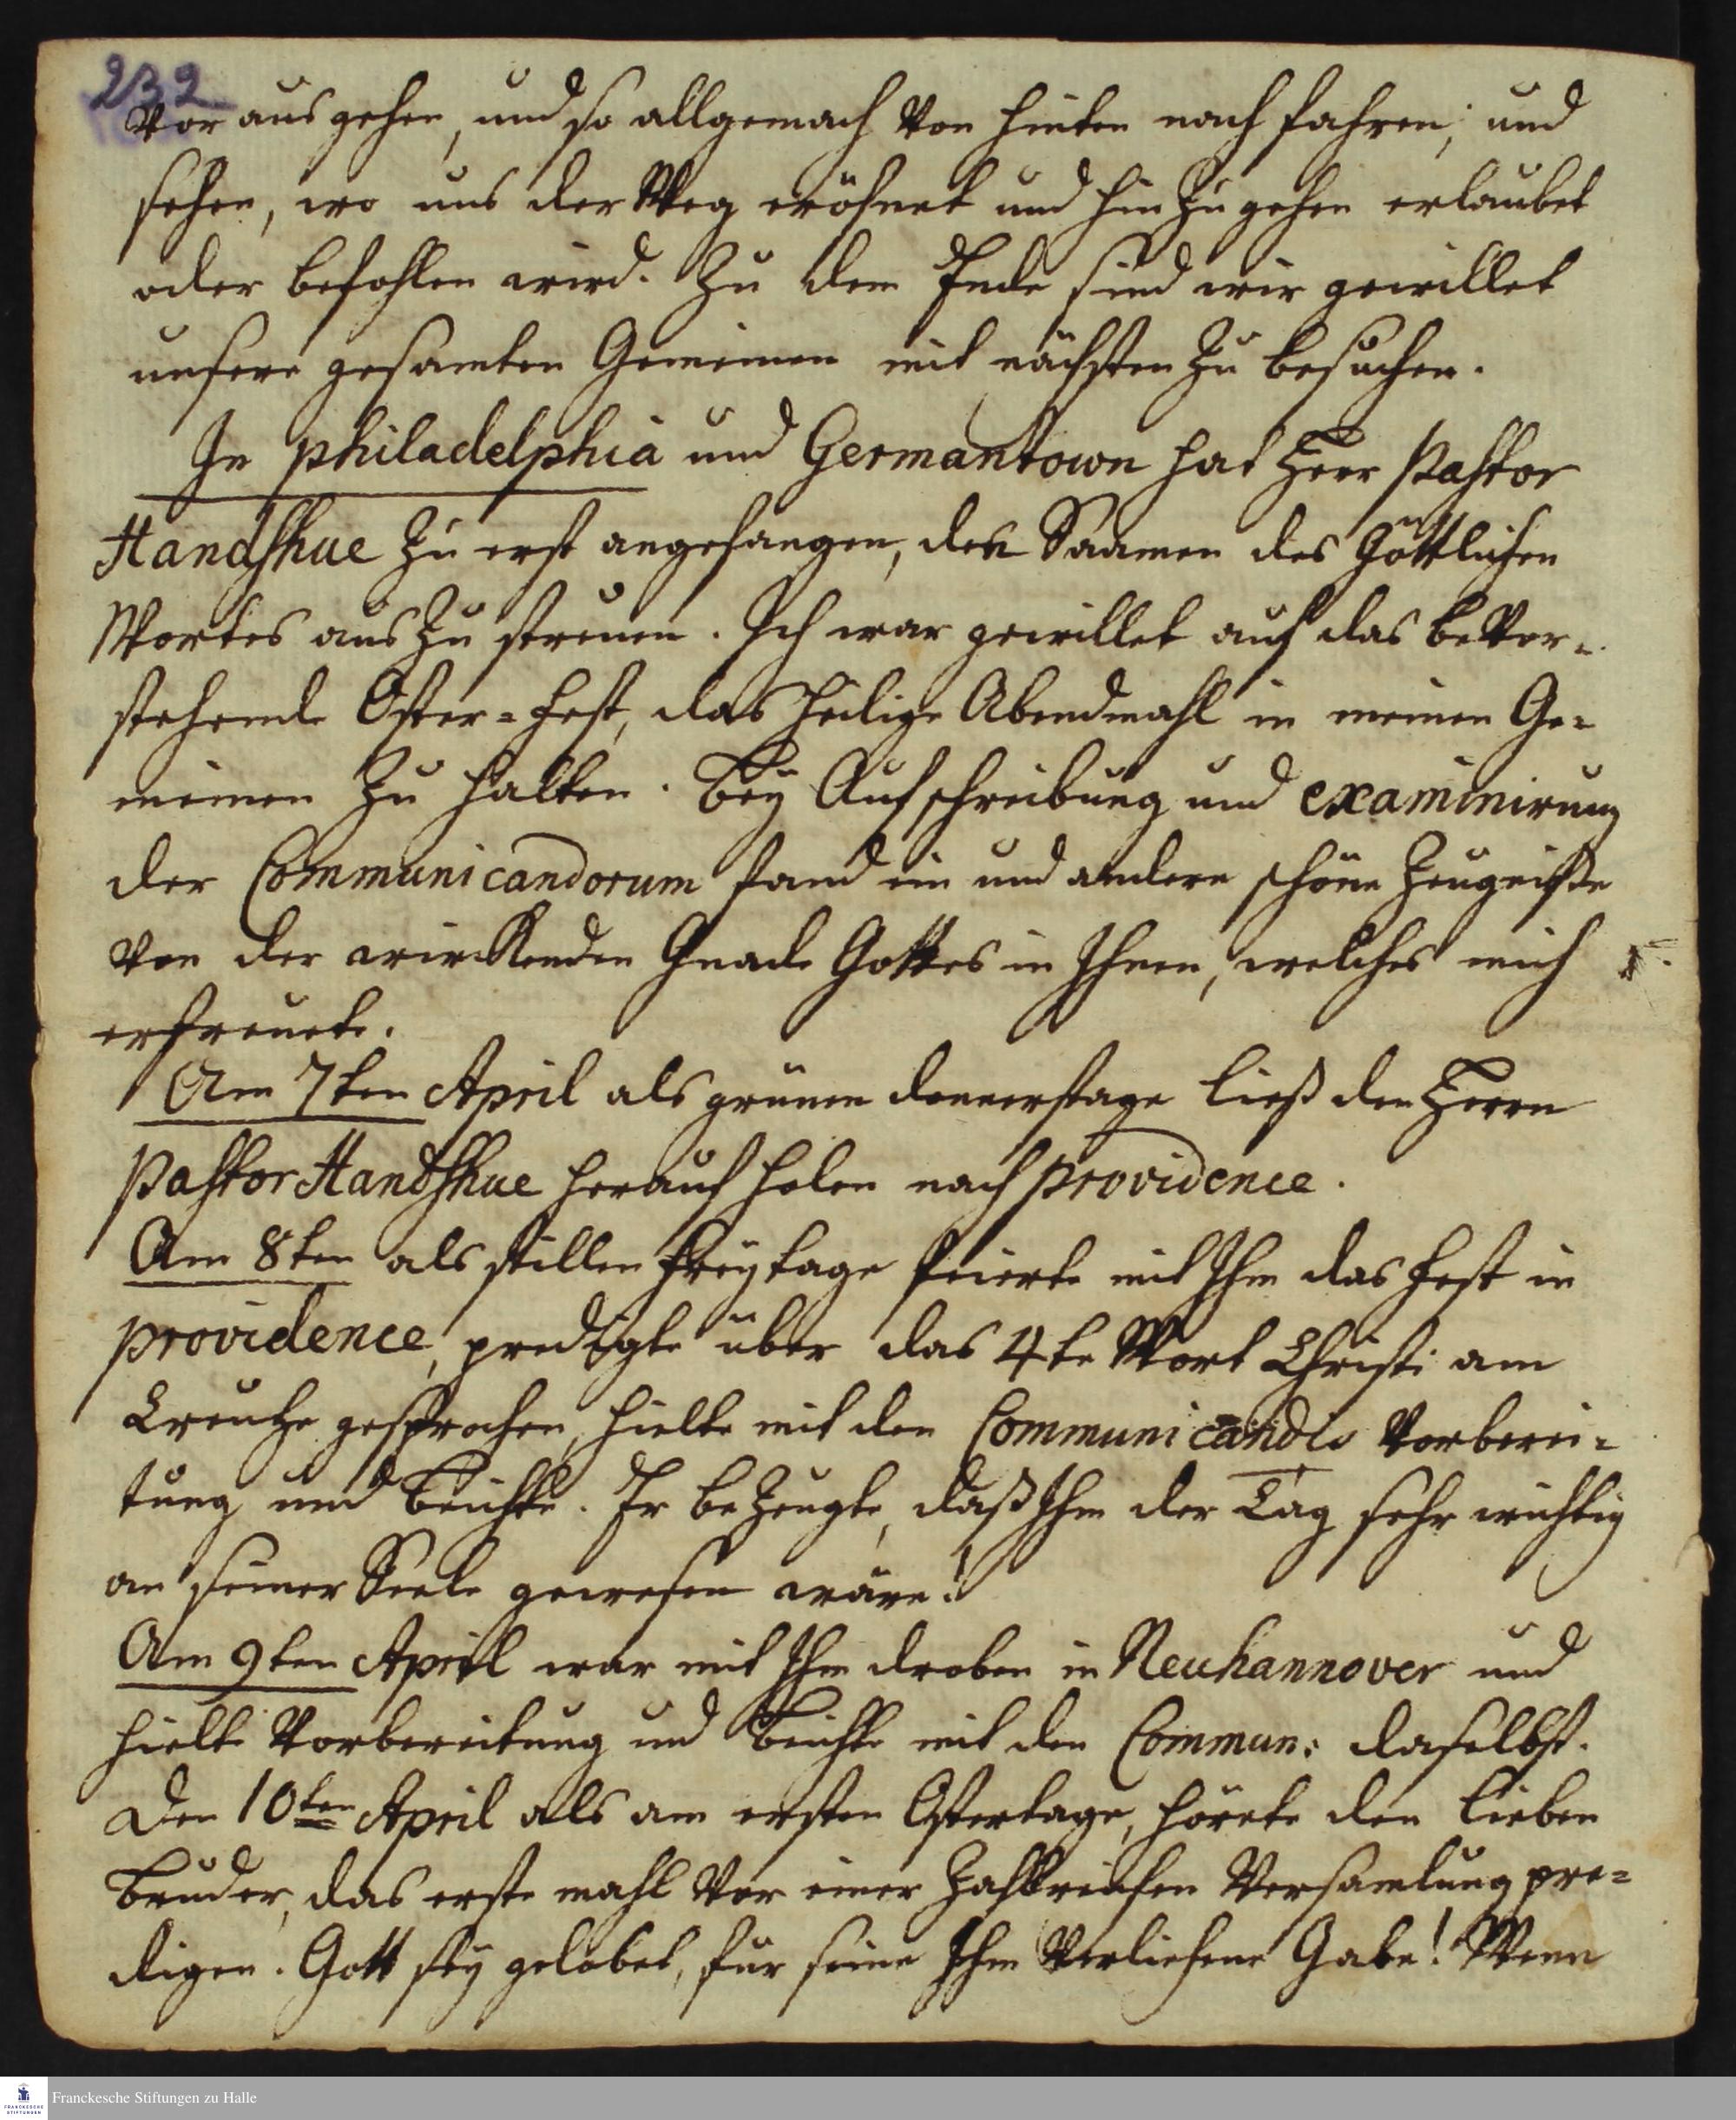 232
vor aus gehen, und so allgemach von hinten nach fahren, und
sehen, wo uns der Weg eröfnet und hin zu gehen erlaubet
oder befohlen wird. Zu dem Ende sind wir gewillet
unsere gesamten Gemeinen mit nächsten zu besuchen.
In philadelphia und Germantown hat Herr Pastor
Handshue zu erst angefangen, den Saamen des Göttlichen
Wortes aus zu streuen. Ich war gewillet auf das bevor-
stehende Oster-Fest, das heilige Abendmahl in meinen Ge-
meinen zu halten. Bey Aufschreibung und examinirung
der Communicandorum fand ein und andere schöne Zeugniße
von der wirckenden Gnade Gottes in Ihnen, welches mich
erfreuete.
Am 7ten April als grünen donnerstage ließ den Herrn
Pastor Handshue herauf holen nach providence.
Am 8ten als stillen Freytage feierte mit Ihm das Fest in
providence, predigte über das 4te Wort Christi am
Creutze gesprochen, hielte mit den Communicandis Vorberei-
tung und Beichte. Er bezeugte, daß Ihm der Tag sehr wichtig
an seiner Seele gewesen wäre!
Am 9ten April war mit Ihm droben in Neuhannover und
hielte Vorbereitung und Beichte mit den Commun: daselbst.
Den 10ten April als am ersten Ostertage, hörete den lieben
Bruder, das erste mahl vor einer zahlreichen Versamlung pre-
digen. Gott sey gelobet, für seine Ihm verliehene Gabe! Wenn
Franckesche Stiftungen zu Halle
FRANCKESCHE
STIFTUNGEN